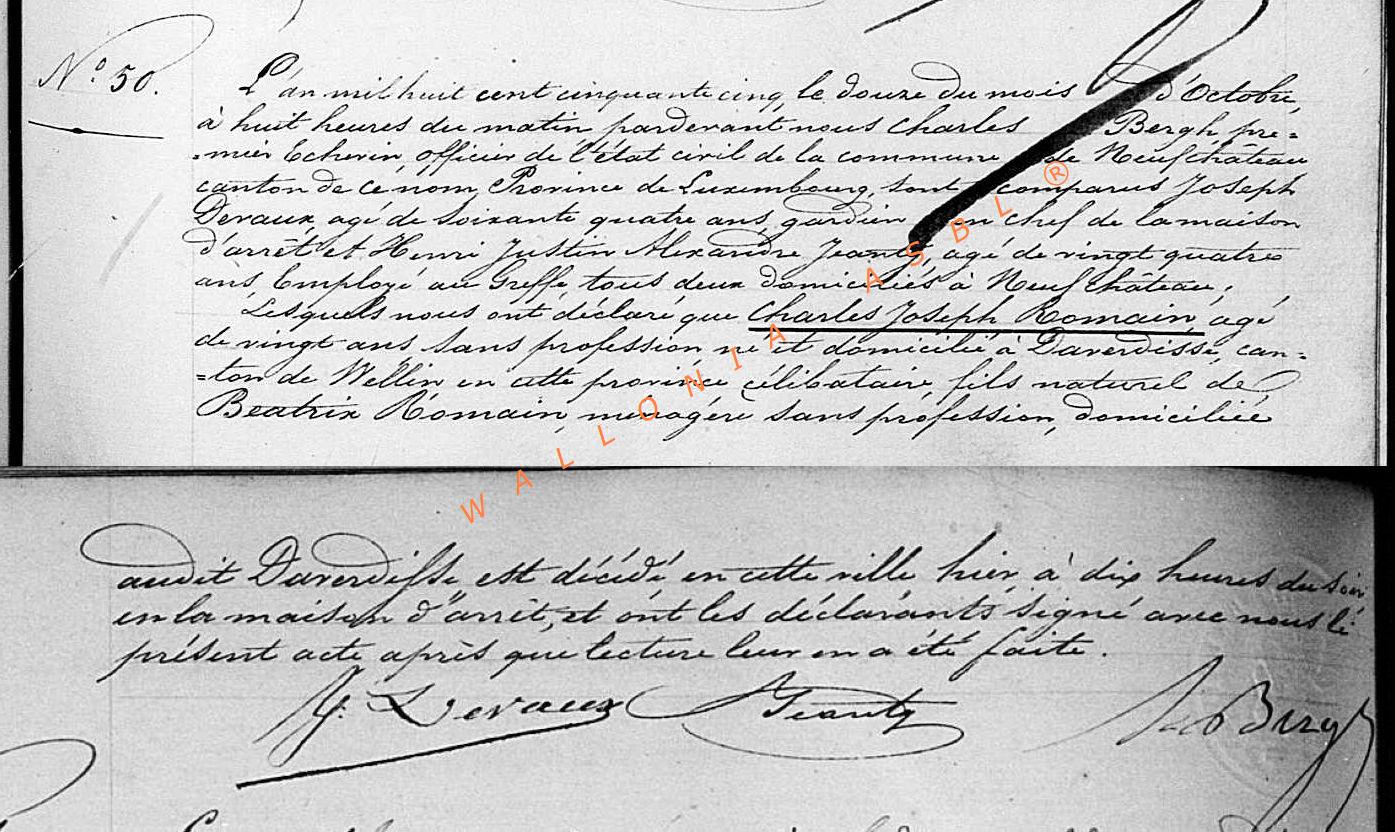 N° 50.
L'an mil huit cent cinquante cinq, le douze du mois d'Octobre,
à huit heures du matin pardevant nous Charles Bergh, pre=
=mier Echevin, officier de l'état civil de la commune de Neufchâteau
canton de ce nom, Province de Luxembourg, sont comparus Joseph
Devaux, agé de soixante quatre ans, gardien en chef de la maison
d'arrêt et Henri Justin Alexandre Jeanty, agé de vingt quatre
ans Employé au Greffe, tous deux domiciliés à Neufchâteau;
Lesquels nous ont déclaré que Charles Joseph Romain, agé
de vingt ans sans profession, né et domicilié à Daverdisse, can=
=ton de Wellin en cette province célibataire, fils naturel de
Beatrix Romain, menagère sans profession, domiciliée
audit Daverdisse est décédé en cette ville hier, à dix heures du soir
en la maison d'arrêt, et ont les déclarants signé avec nous le
présent acte après que lecture leur en a été faite.
J. Devaux Jeanty Bergh
WALLONIA ASBL ®